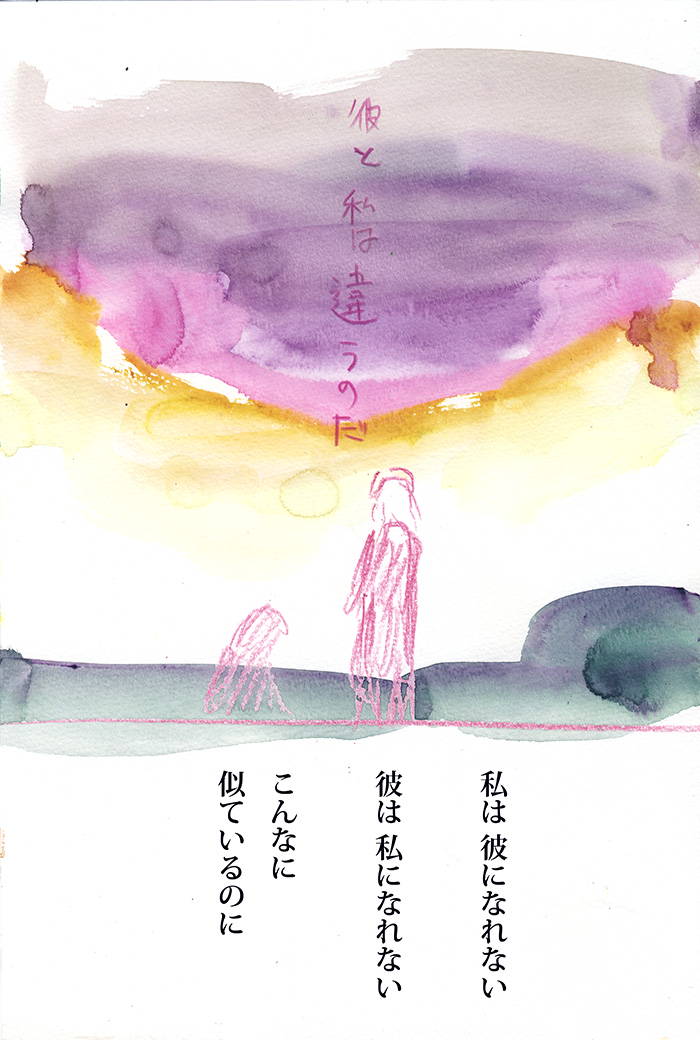 彼と 私は 違うのだ
私は 彼になれない
彼は 私になれない
こんなに
似ているのに